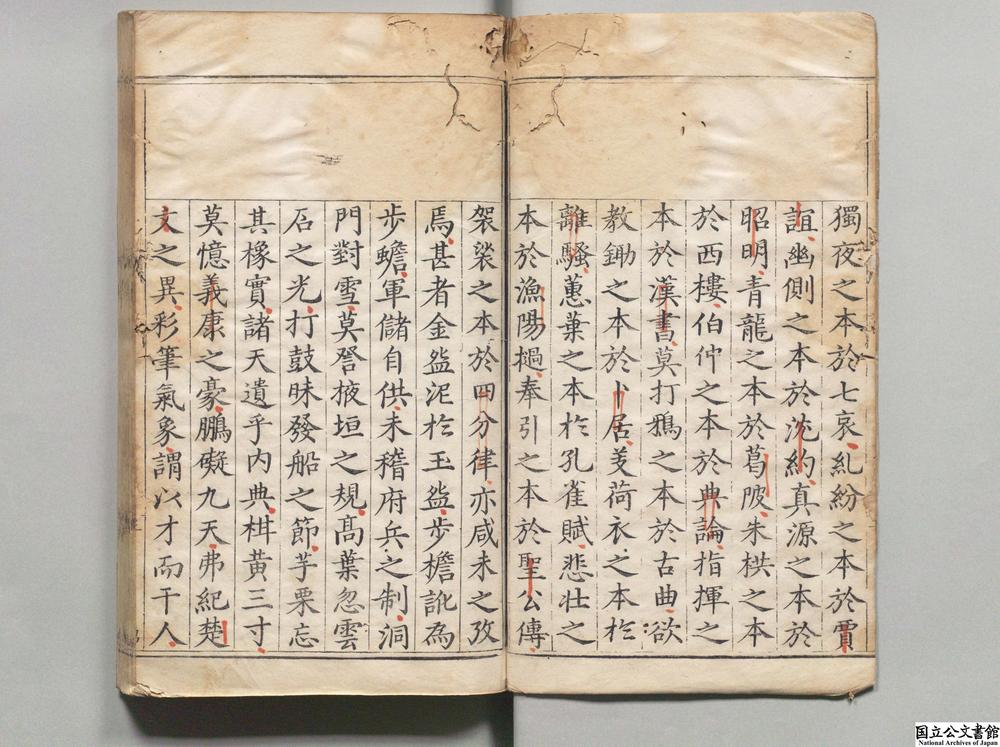 獨夜之本於七哀糺紛之本於賈
誼幽側之本於沈約真源之本於
昭明青龍之本於葛陂朱栱之本
於西樓伯仲之本於典論指揮之
本於漢書莫打鴉之本於古曲欲
教鋤之本於卜居芰荷衣之本於
離騷蕙葉之本於孔雀賦悲壯之
本於漁陽撾奉引之本於聖公傳
袈裟之本於四分律亦咸未之攷
焉甚者金盌泥於玉盌步檐訛為
步蟾軍儲自供未稽府兵之制洞
門對雪莫詧掖垣之規高葉忽雲
石之光打鼓昧發船之節芋栗忘
其橡實諸天遺乎内典柑黃三寸
莫憶義康之豪鵬礙九天弗紀楚
文之異彩筆氣象謂以才而干人
国立公文書館
National Archives of Japan